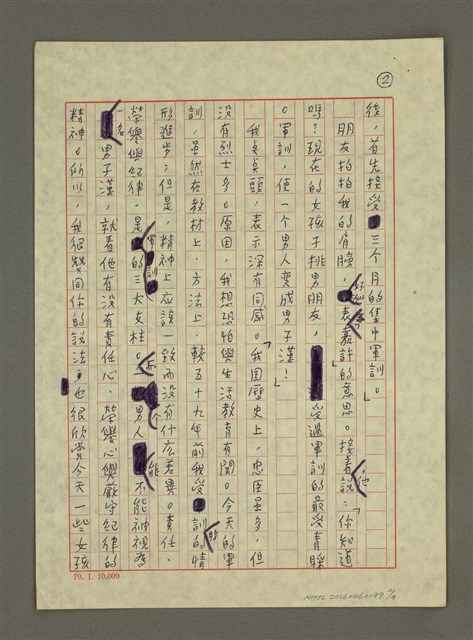 ②
後，首先接受三个月的集中軍訓。」
朋友拍拍我的肩膀，好似表嘉許的意思。接着他說：「你知道
嗎？現在的女孩子挑男朋友，受過軍訓的最受青睬
。軍訓，使一个男人変成男子漢！」
我点点頭，表示深有同感。「我国歷史上，忠臣虽多，但
没有烈士多。原因，我想恐怕與生活教育有関。今天的軍
訓，虽然在教材上．方法上．較五十九年前我受訓的時情
形進步；但是，精神上应該一致而没有什庅差異。責任．
榮譽與紀律，是軍訓的三大支柱。一个男人能不能神視為
一名男子漢，就看他有没有責任心．榮譽心與嚴守紀律的
精神。所以，我很賛同你的說法，也很欣賞今天一些女孩
79. 1. 10,000
NMTL 20160260089 2/4